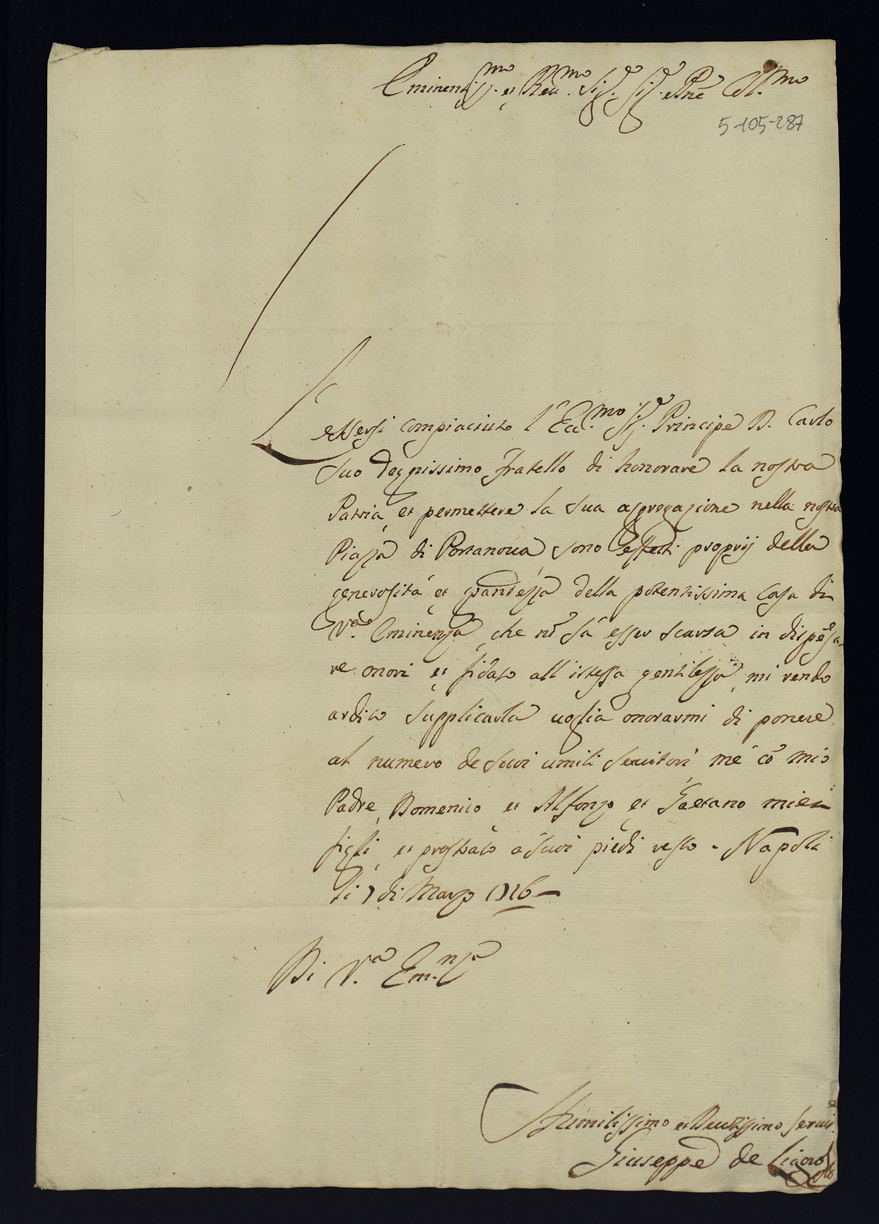 Eminentiss.mo et Reu.mo Sig.r Sig.r Pne Col.mo
5-105-287
L'essersi compiaciuto l'Ecc.mo Sig.r Principe D. Carlo
suo degnissimo fratello di honorare la nostra
Patria, et permettere la sua aggregazione nella nostra
Piazza di Portanoua sono effetti proprij della
generosità et grandezza della potentissima Casa di
V.ra Eminenza, che nō sà esser scarsa in dispēsa-
re onori et fidato all'istessa gentilezza, mi rendo
ardito supplicarla uoglia onorarmi di ponere
al numero de suoi umili seruitori mè cō mio
Padre Domenico, et Alfonzo, et Gaetano miei
figli, et prostrato a suoi piedi resto - Napoli
li 7 di Marzo 1716
Di V.a Em.nza
Humilissimo et Deuotissimo seruit.e
Giuseppe de Liguoro